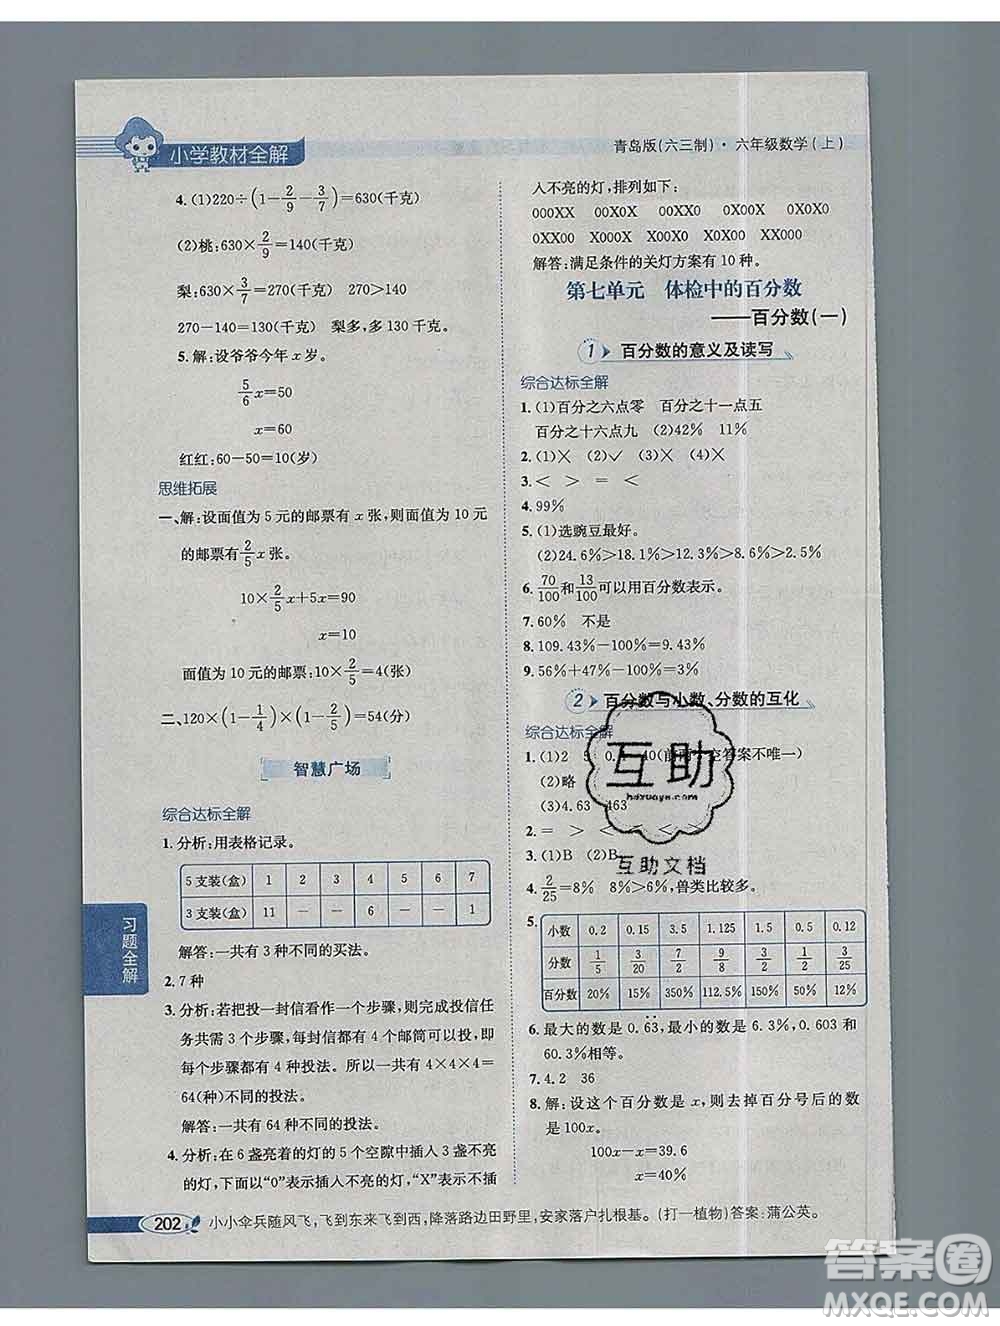 小学教材全解
青岛版(六三制)·六年级数学(上)
4.(1)220÷(1-2/9-3/7)=630(千克)
(2)桃:630×2/9=140(千克)
梨:630×3/7=270(千克) 270>140
270-140=130(千克) 梨多,多130千克。
5.解:设爷爷今年x岁。
5/6x=50
x=60
红红:60-50=10(岁)
思维拓展
一、解:设面值为5元的邮票有x张,则面值为10元
的邮票有2/5x张。
10×2/5x+5x=90
x=10
面值为10元的邮票:10×2/5=4(张)
二、120×(1-1/4)×(1-2/5)=54(分)
智慧广场
综合达标全解
1.分析:用表格记录。
5支装(盒) 1 2 3 4 5 6 7
3支装(盒) 11 - - 6 - - 1
解答:一共有3种不同的买法。
2.7种
3.分析:若把投一封信看作一个步骤,则完成投信任
务共需3个步骤,每封信都有4个邮筒可以投,即
每个步骤都有4种投法。所以一共有4×4×4=
64(种)不同的投法。
解答:一共有64种不同的投法。
4.分析:在6盏亮着的灯的5个空隙中插入3盏不亮
的灯,下面以"0"表示插入不亮的灯,"X"表示不插
习题全解
人不亮的灯,排列如下:
000XX 00X0X 00XX0 0X00X 0X0X0
0XX00 X000X X00X0 X0X00 XX000
解答:满足条件的关灯方案有10种。
第七单元 体检中的百分数
——百分数(一)
1 百分数的意义及读写
综合达标全解
1.(1)百分之六点零 百分之十一点五
百分之十六点九 (2)42% 11%
2.(1)× (2)✓ (3)× (4)×
3.< > = <
4.99%
5.(1)选豌豆最好。
(2)24.6%>18.1%>12.3%>8.6%>2.5%
6.70/100和13/100可以用百分数表示。
7.60% 不是
8.109.43%-100%=9.43%
9.56%+47%-100%=3%
2 百分数与小数、分数的互化
综合达标全解
1.(1)2 5 0.4 40(前两空答案不唯一)
(2)略
(3)4.63 463
2.= > < = <
3.(1)B (2)B
4.2/25=8% 8%>6%,兽类比较多。
5.
小数 0.2 0.15 3.5 1.125 1.5 0.5 0.12
分数 1/5 3/20 7/2 9/8 3/2 1/2 3/25
百分数 20% 15% 350% 112.5% 150% 50% 12%
6.最大的数是0.6̇3̇,最小的数是6.3%,0.603和
60.3%相等。
7.4.2 36
8.解:设这个百分数是x,则去掉百分号后的数
是100x。
100x-x=39.6
x=40%
互助
hdzuoye.com
互助文档
202 小小伞兵随风飞,飞到东来飞到西,降落路边田野里,安家落户扎根基。(打一植物)答案:蒲公英。
答案圈
MXQE.COM